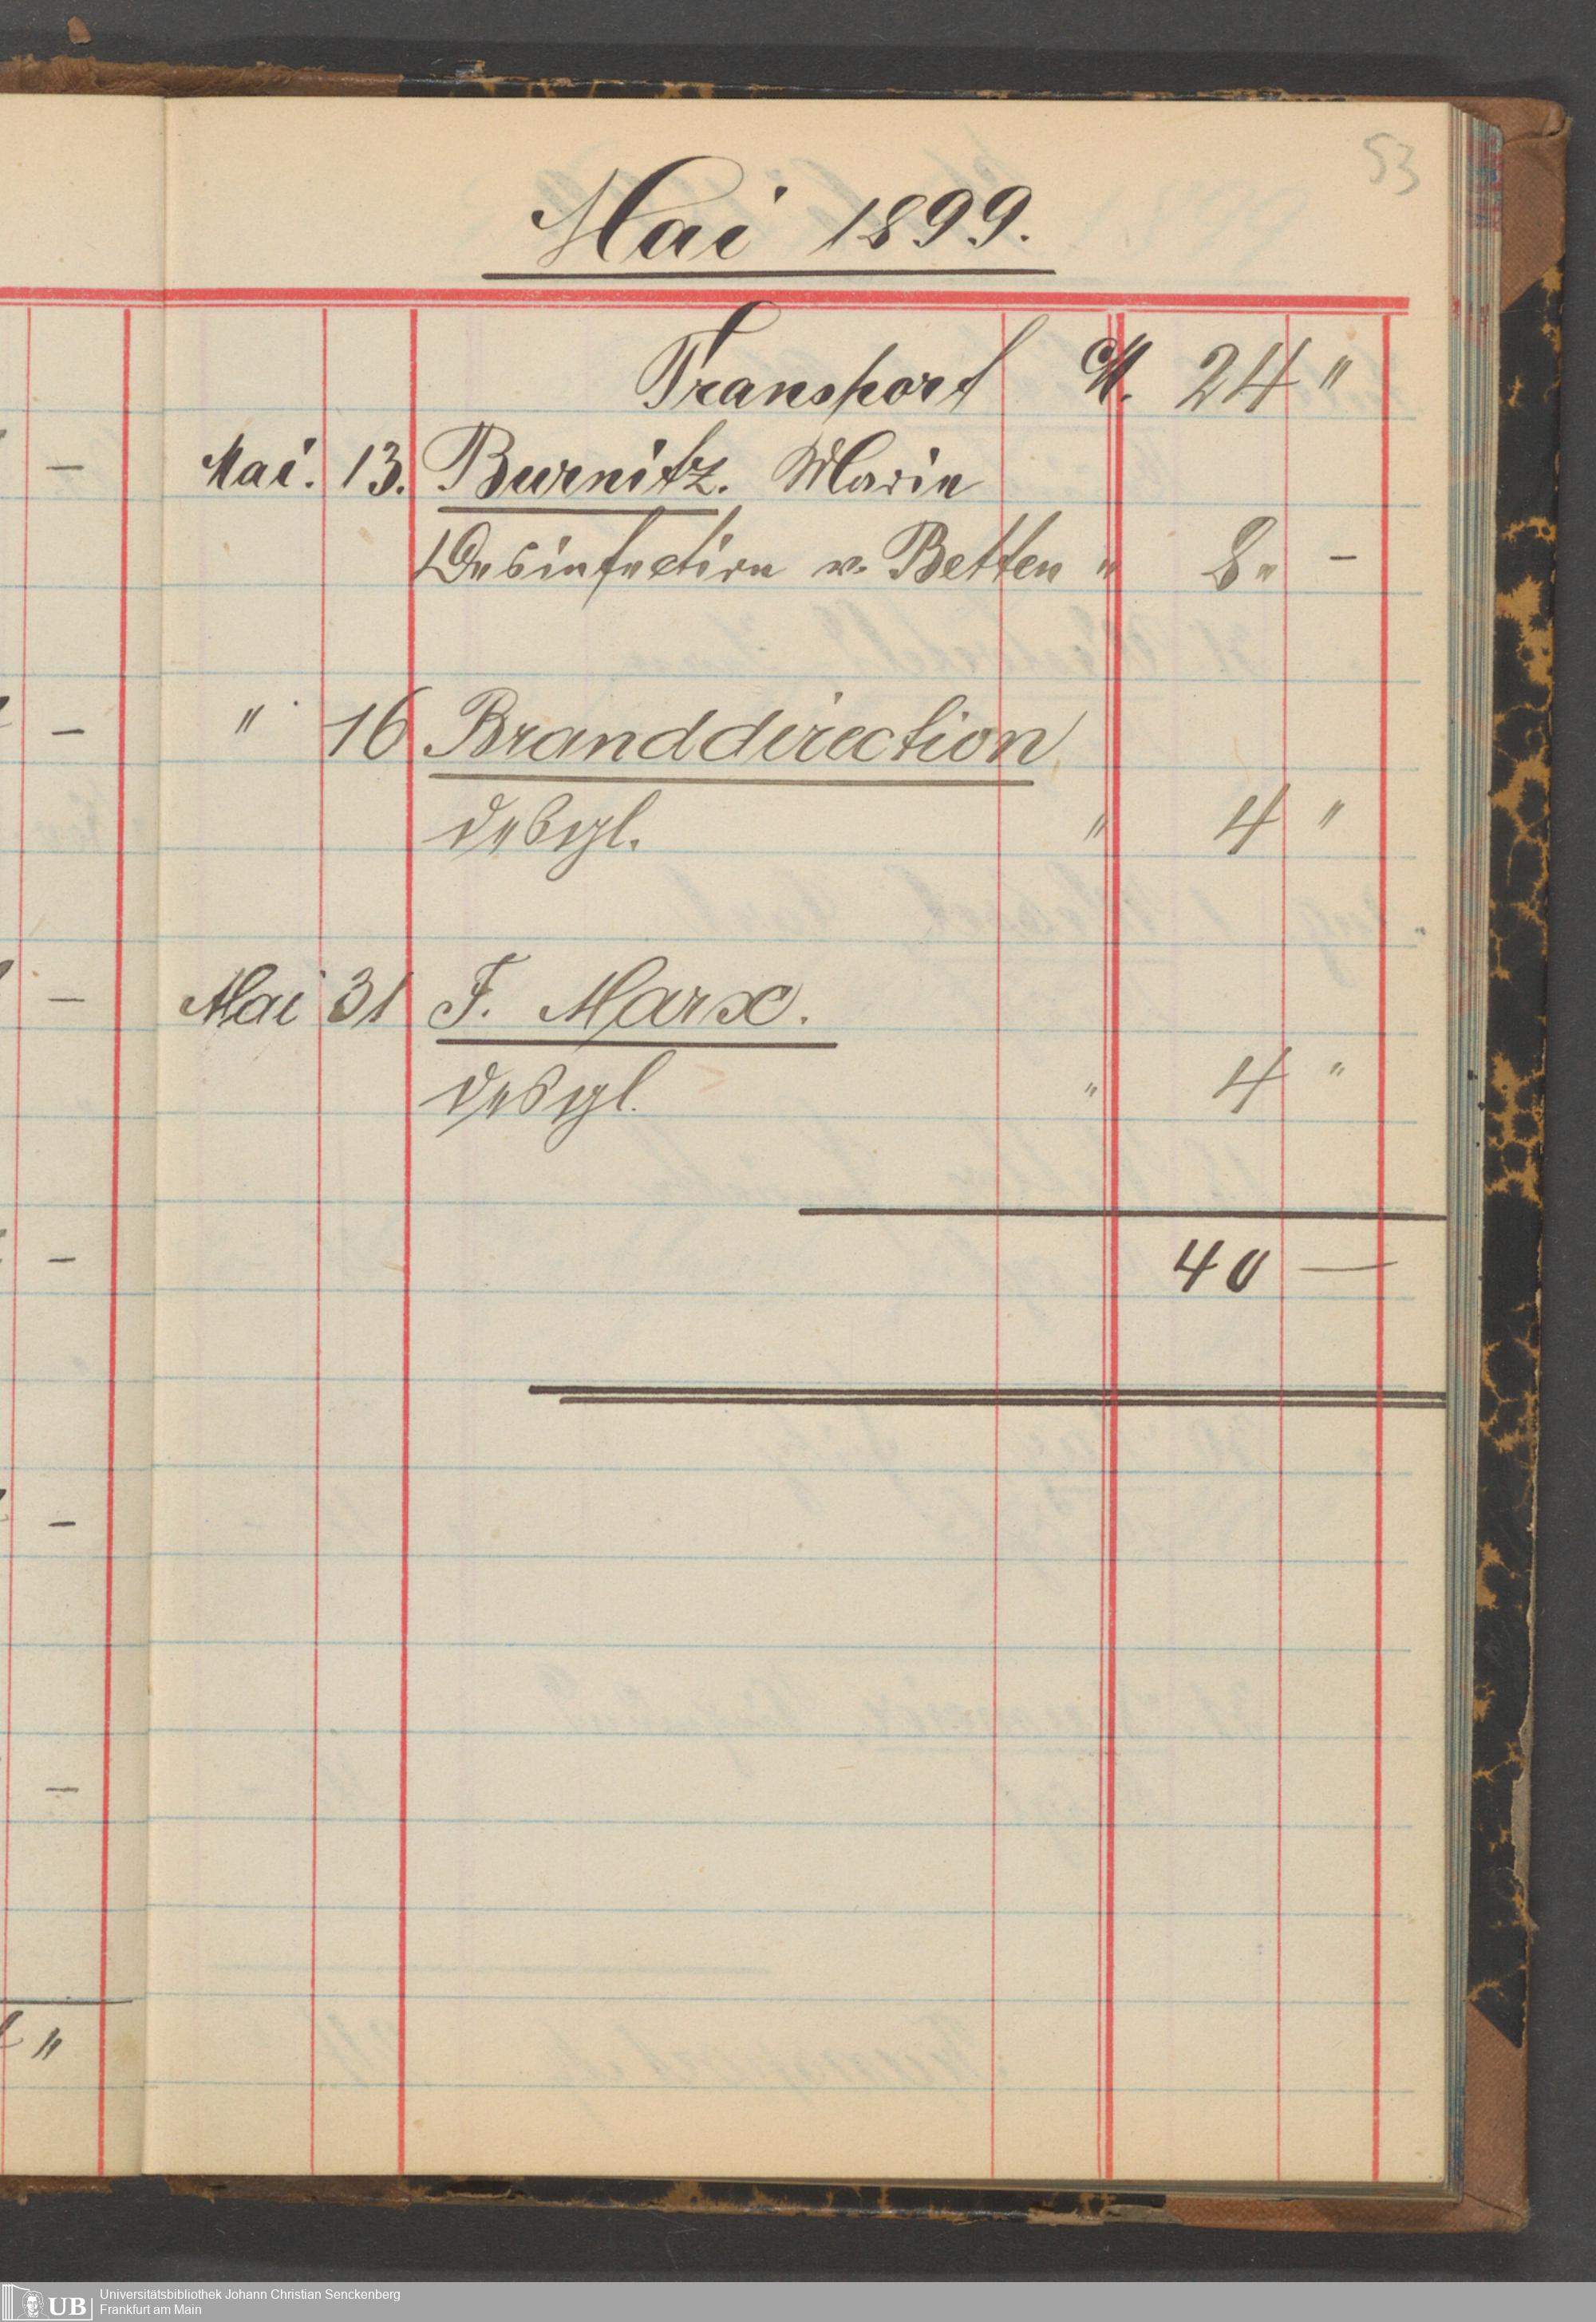 53
Mai 1899.
Transport M. 24 "
Mai. 13. Burnitz. Marie
Desinfection v. Betten " 8 " –
" 16 Branddirection
desgl. " 4 "
Mai 31 F. Marx.
desgl. " 4 "
40 —
UB Universitätsbibliothek Johann Christian Senckenberg
Frankfurt am Main